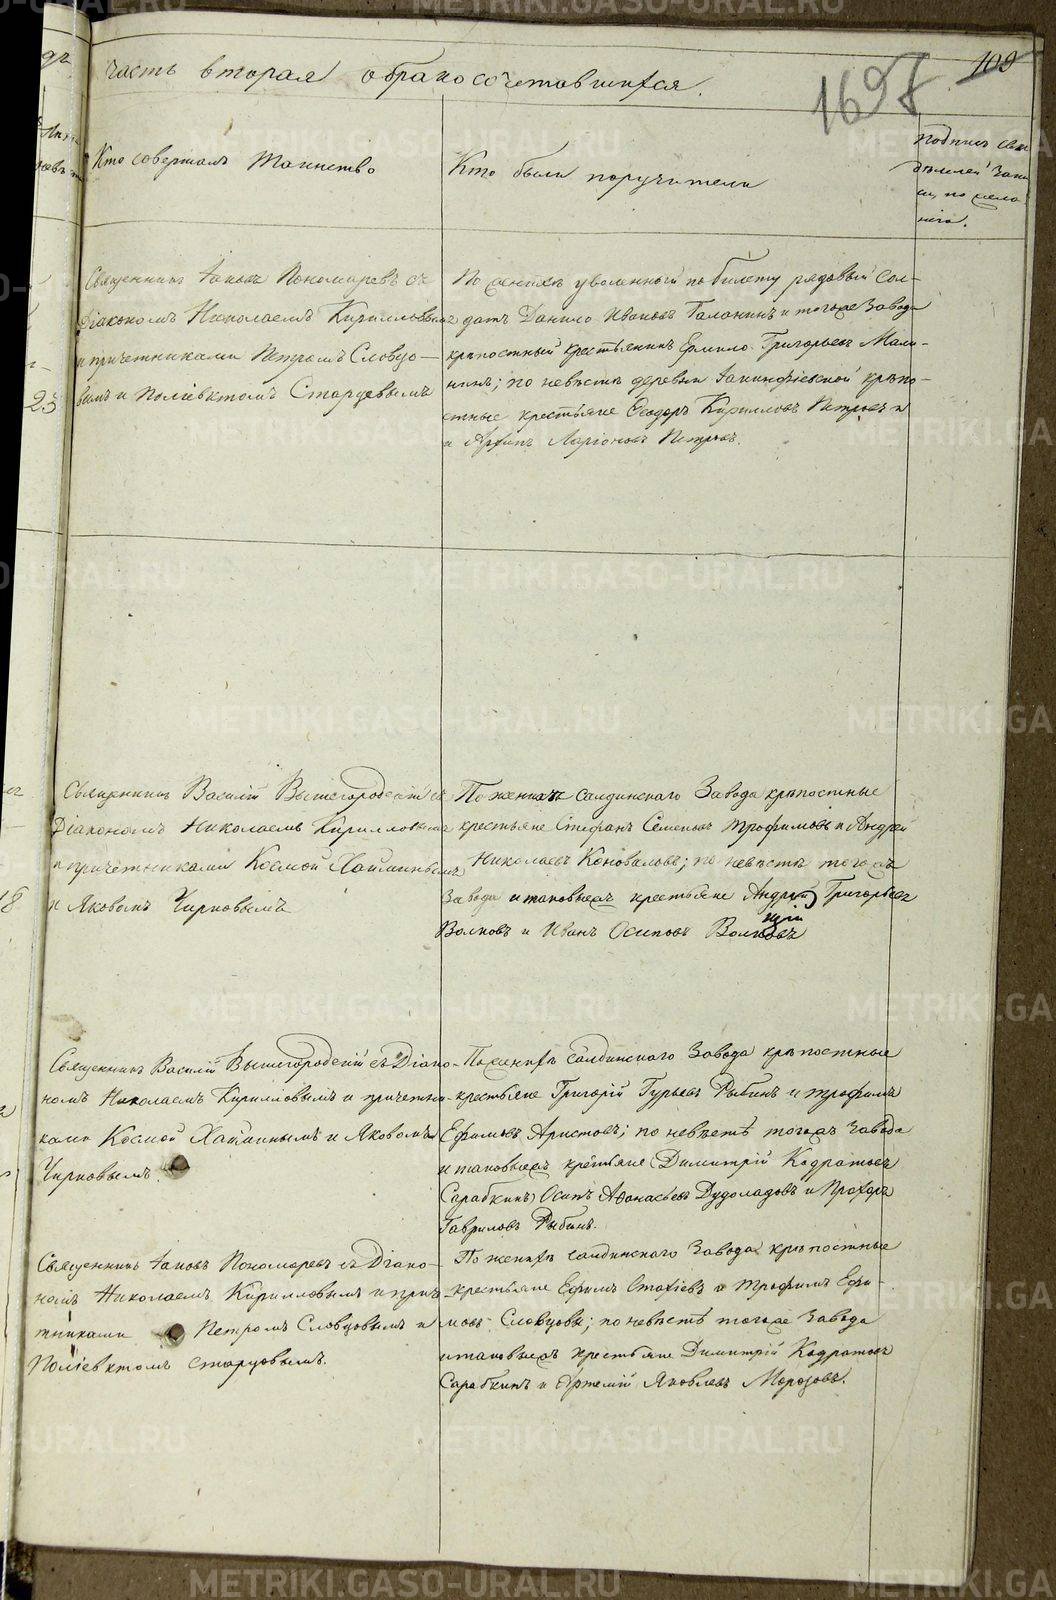 часть вторая о бракосочетавшихся.
1697
109
Кто совершалъ таинство
Кто были поручители
подпись сви
дѣтелей запи
си, по жела
нію.
Священникъ Іаковъ Пономаревъ съ
Діакономъ Николаемъ Кирилловымъ
и причетниками Петромъ Словцо-
вымъ и Поліевктомъ Старцовымъ
По женихѣ уволенный по билету рядовый сол-
датъ Данило Ивановъ Галанинъ и тогоже завода
крѣпостный крестьянинъ Ермило Григорьевъ Мали-
нинъ; по невѣстѣ деревни Іакинфіевской крѣпо-
стные крестьяне Ѳеодоръ Кирилловъ Петровъ и
и Архипъ Ларіоновъ Петровъ.
23
Священникъ Василій Вышегородскій съ
Діакономъ Николаемъ Кирилловымъ
и причетниками Космой Хайминымъ
и Яковомъ Чирковымъ
По женихѣ салдинскаго Завода крѣпостные
крестьяне Стефанъ Семеновъ Трофимовъ и Андрей
Николаевъ Коноваловъ; по невѣстѣ тогожъ
Завода и таковыежъ крестьяне Андрей Григорьевъ
Волковъ и Иванъ Осиповъ
18
Священникъ Василій Вышегородскій съ Діако-
номъ Николаемъ Кирилловымъ и причетни-
ками Космой Хайминымъ и Яковомъ
Чирковымъ.
По женихѣ салдинскаго Завода крѣпостные
крестьяне Григорій Гурьевъ Рыбинъ и Трофимъ
Ефимовъ Аристовъ; по невѣстѣ тогожъ завода
и таковыежъ крестьяне Димитрій Кодратьевъ
Сарабкинъ, Осипъ Аѳонасьевъ Дудоладовъ и Прохоръ
Гавриловъ Рыбинъ.
Священникъ Іаковъ Пономаревъ съ Діако-
номъ Николаемъ Кирилловымъ и приче-
тниками Петромъ Словцовымъ и
Поліевктомъ Старцовымъ.
По женихѣ салдинскаго Завода крѣпостные
крестьяне Ефимъ Стахіевъ и Трофимъ Ефи-
мовъ Словцовы; по невѣстѣ тогоже Завода
и таковыежъ крестьяне Димитрій Кодратьевъ
Сарабкинъ и Артемій Яковлевъ Морозовъ.
METRIKI.GASO-URAL.RU